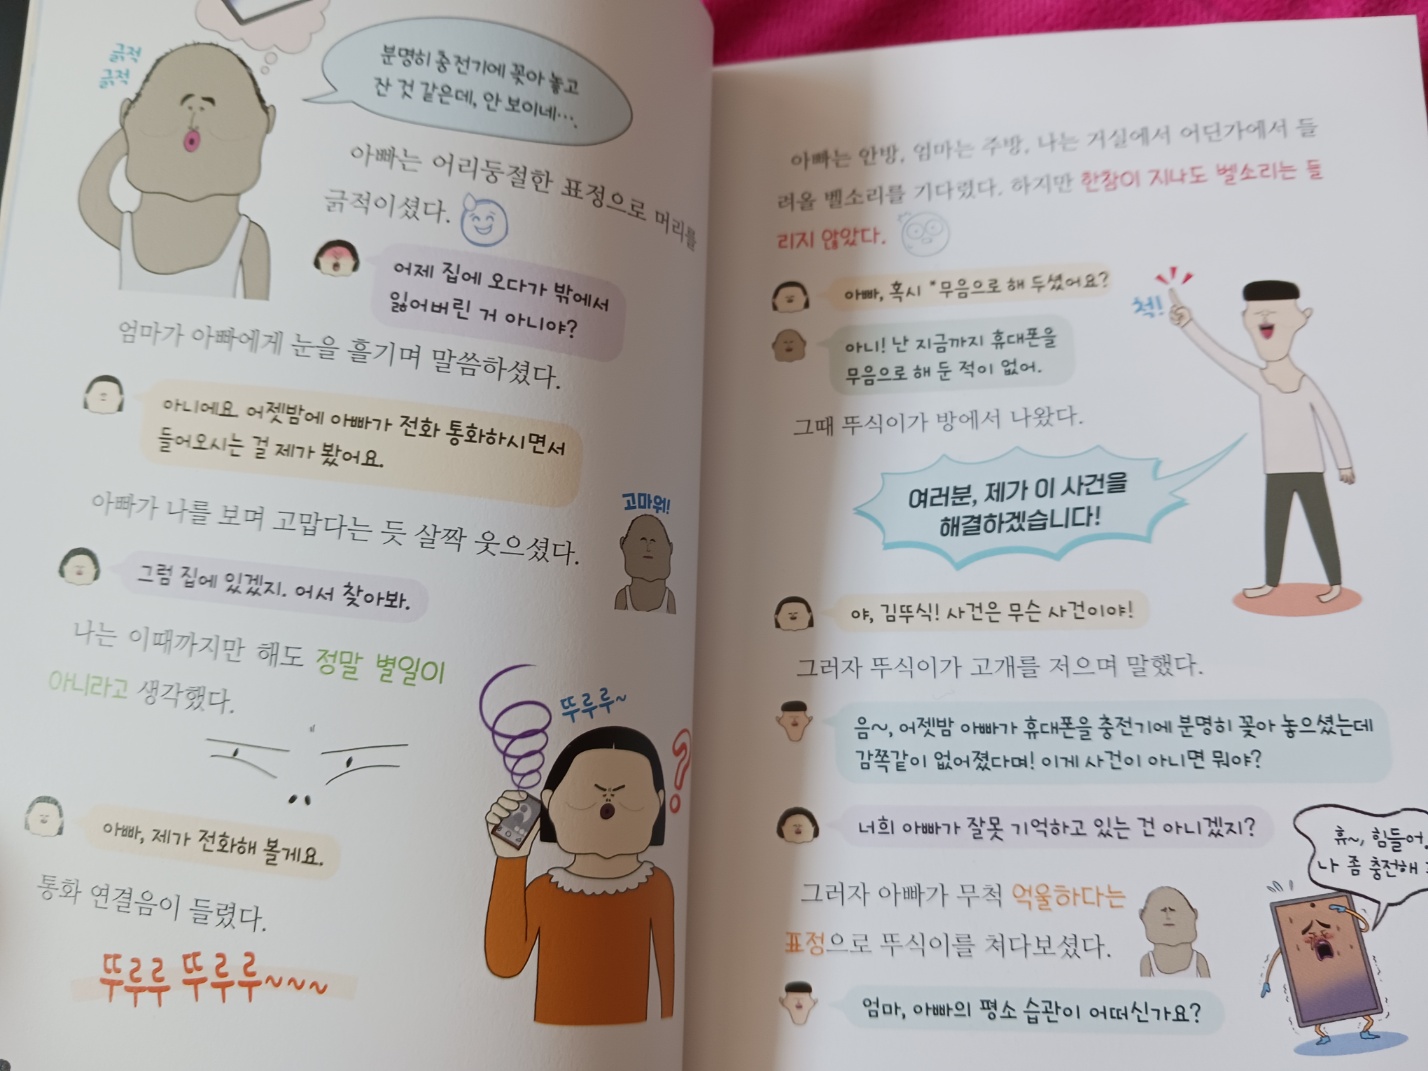 긁적
긁적
분명히 충전기에 꽂아 놓고
잔 것 같은데, 안 보이네….
아빠는 어리둥절한 표정으로 머리를
긁적이셨다.
어제 집에 오다가 밖에서
잃어버린 거 아니야?
엄마가 아빠에게 눈을 흘기며 말씀하셨다.
아니에요. 어젯밤에 아빠가 전화 통화하시면서
들어오시는 걸 제가 봤어요.
아빠가 나를 보며 고맙다는 듯 살짝 웃으셨다.
고마워!
그럼 집에 있겠지. 어서 찾아봐.
나는 이때까지만 해도 정말 별일이
아니라고 생각했다.
뚜루루~
아빠, 제가 전화해 볼게요.
통화 연결음이 들렸다.
뚜루루 뚜루루~~~
아빠는 안방, 엄마는 주방, 나는 거실에서 어딘가에서 들
려올 벨소리를 기다렸다. 하지만 한참이 지나도 벨소리는 들
리지 않았다.
아빠, 혹시 *무음으로 해 두셨어요?
아니! 난 지금까지 휴대폰을
무음으로 해 둔 적이 없어.
척!
그때 뚜식이가 방에서 나왔다.
여러분, 제가 이 사건을
해결하겠습니다!
야, 김뚜식! 사건은 무슨 사건이야!
그러자 뚜식이가 고개를 저으며 말했다.
음~, 어젯밤 아빠가 휴대폰을 충전기에 분명히 꽂아 놓으셨는데
감쪽같이 없어졌다며! 이게 사건이 아니면 뭐야?
너희 아빠가 잘못 기억하고 있는 건 아니겠지?
휴~, 힘들어.
나 좀 충전해
그러자 아빠가 무척 억울하다는
표정으로 뚜식이를 쳐다보셨다.
엄마, 아빠의 평소 습관이 어떠신가요?